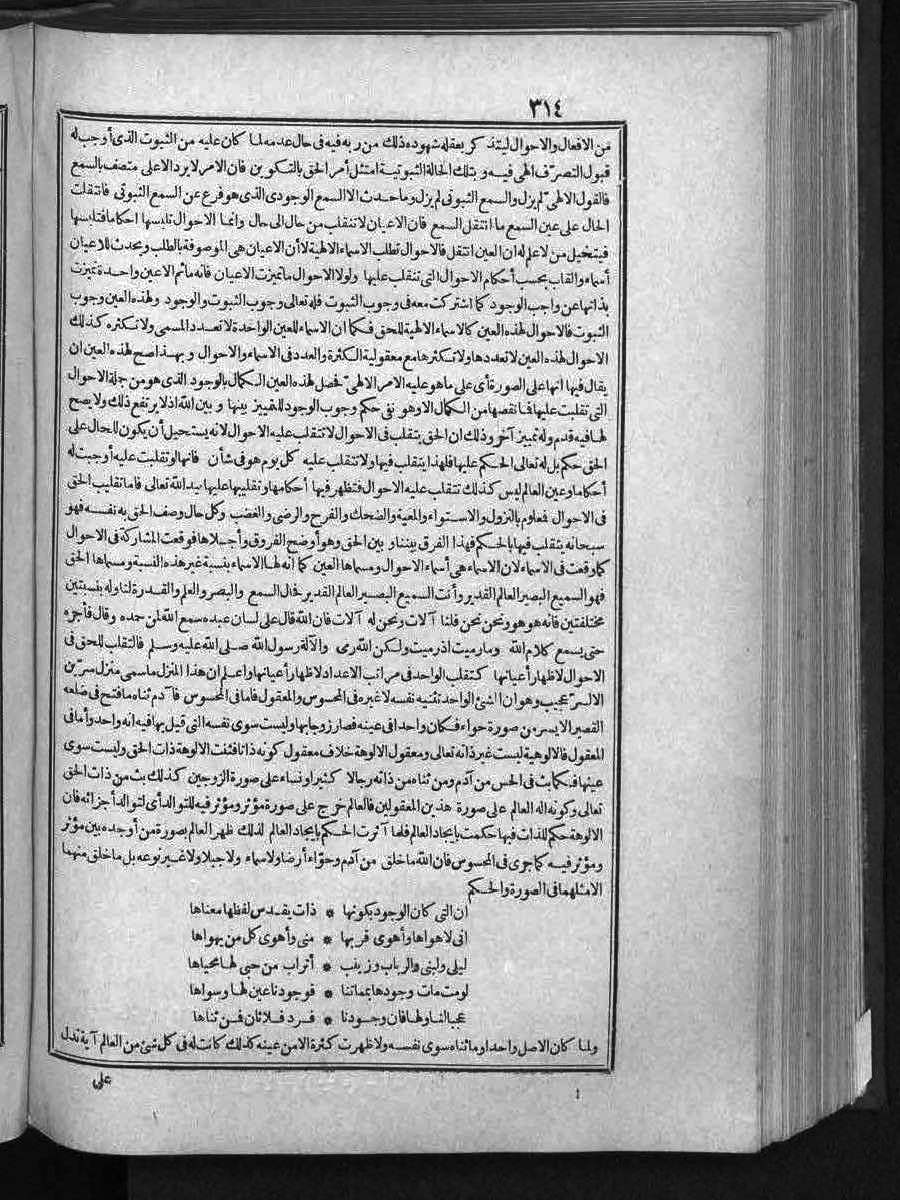 ٣١٤
من الافعال والاحوال ليتذكر بعقله شهوده ذلك من ربه فيه فى حال عدمه لما كان عليه من الثبوت الذى أوجب له
قبول التصرّف الهى فيه وبتلك الحالة الثبوتية امتثل أمر الحق بالتكوين فان الامر لا يرد الا على متصف بالسمع
فالقول الالهى لم يزل والسمع الثبوتى لم يزل وما حدث الا السمع الوجودى الذى هو فرع عن السمع الثبوتى فانتقلت
الحال على عين السمع ما انتقل السمع فان الاعيان لا تنقلب من حال الى حال وانما الاحوال تلبسها احكاما فتلبسها
فيتخيل من لا علم له ان العين انتقل فالاحوال تطلب الاسماء الالهية لا أن الاعيان هى الموصوفة بالطلب ويحدث للاعيان
أسماء والقاب بحسب أحكام الاحوال التى تنقلب عليها ولولا الاحوال ما تميزت الاعيان فانه ما ثم الا عين واحدة تميزت
بذاتها عن واجب الوجود كما اشتركت معه فى وجوب الثبوت فله تعالى وجوب الثبوت والوجود ولهذه العين وجوب
الثبوت فالاحوال لهذه العين كالاسماء الالهية للحق فكما ان الاسماء للعين الواحدة لا تعدد المسمى ولا تكثره كذلك
الاحوال لهذه العين لا تعددها ولا تكثرها مع معقولية الكثرة والعدد فى الاسماء والاحوال وبهذا صح لهذه العين ان
يقال فيها انها على الصورة أى على ماهو عليه الامر الالهى فحصل لهذه العين الكمال بالوجود الذى هو من جلة الاحوال
التى تقلبت عليها فما نقصها من الكمال الا وهو نفى حكم وجوب الوجود للتمييز بينها وبين الله اذ لا يرتفع ذلك ولا يصح
لها فيه قدم وله تمييز آخر وذلك ان الحق يتقلب فى الاحوال لا تتقلب عليه الاحوال لانه يستحيل أن يكون للحال على
الحق حكم بل له تعالى الحكم عليها فلهذا يتقلب فيها ولا تتقلب عليه كل يوم هو فى شأن فانها لو تقلبت عليه أوجبت له
أحكاما وعين العالم ليس كذلك تتقلب عليه الاحوال فتظهر فيها أحكامها وتقليبها عليها بيد الله تعالى فاما تقليب الحق
فى الاحوال فمعلوم بالنزول والاستواء والمعية والضحك والفرح والرضى والغضب وكل حال وصف الحق به نفسه فهو
سبحانه يتقلب فيها بالحكم فهذا الفرق بيننا وبين الحق وهو أوضح الفروق وأجلاها فوقعت المشاركة فى الاحوال
كما وقعت فى الاسماء لان الاسماء هى أسماء الاحوال ومسماها العين كما أنه لها الاسماء بنسبة غير هذه النسبة ومسماها الحق
فهو السميع البصير العالم القدير وأنت السميع البصير العالم القدير فحال السمع والبصر والعلم والقدرة لنا وله بنسبتين
مختلفتين فانه هو هو ونحن نحن فلنا آلات ونحن له آلات فان الله قال على لسان عبده سمع الله لمن حمده وقال فأجره
حتى يسمع كلام الله وما رميت اذ رميت ولكن الله رمى والآلة رسول الله صلى الله عليه وسلم فالتقلب للحق فى
الاحوال لاظهار أعيانها كتقلب الواحد فى مراتب الاعداد لاظهار أعيانها واعلم ان هذا المنزل ما سمى منزل سرّين
الا لسرّ عجيب وهو ان الشئ الواحد تثنيه نفسه لا غيره فى المحسوس والمعقول فاما فى المحسوس فا دم ثناه ما فتح فى ضلعه
القصير الايسر من صورة حواء فكان واحدا فى عينه فصار زوجا بها وليست سوى نفسه التى قيل بها فيه انه واحد وأما فى
المعقول فالالوهية ليست غير ذاته تعالى ومعقول الالوهة خلاف معقول كونه ذاتا فثنت الالوهة ذات الحق وليست سوى
عينها فكما بث فى الحس من آدم ومن ثناه من ذاته رجالا كثيرا ونساء على صورة الزوجين كذلك بث من ذات الحق
تعالى وكونه اله العالم على صورة هذين المعقولين فالعالم خرج على صورة مؤثر ومؤثر فيه للتوالد أى لتوالد أجزائه فان
الالوهة حكم للذات فيها حكمت بايجاد العالم فلما آثرت الحكم بايجاد العالم لذلك ظهر العالم بصورة من أوجده بين مؤثر
ومؤثر فيه كما جرى فى المحسوس فان الله ما خلق من آدم وحوّاء أرضا ولا سماء ولا جبلا ولا غير نوعه بل ما خلق منهما
الا مثلهما فى الصورة والحكم
ان التى كان الوجود بكونها * ذات يقدس لفظها معناها
انى لاهواها وأهوى قربها * منى وأهوى كل من يهواها
ليلى ولبنى والرباب وزينب * أتراب من حبى لها محياها
لو مت مات وجودها بمماتنا * فوجودنا عين لها وسواها
عجبا لنا ولها فان وجودنا * فرد فلا ثان فمن ثناها
ولما كان الاصل واحدا وما ثناه سوى نفسه ولا ظهرت كثرة الا من عينه كذلك كانت له فى كل شئ من العالم آية تدل
على